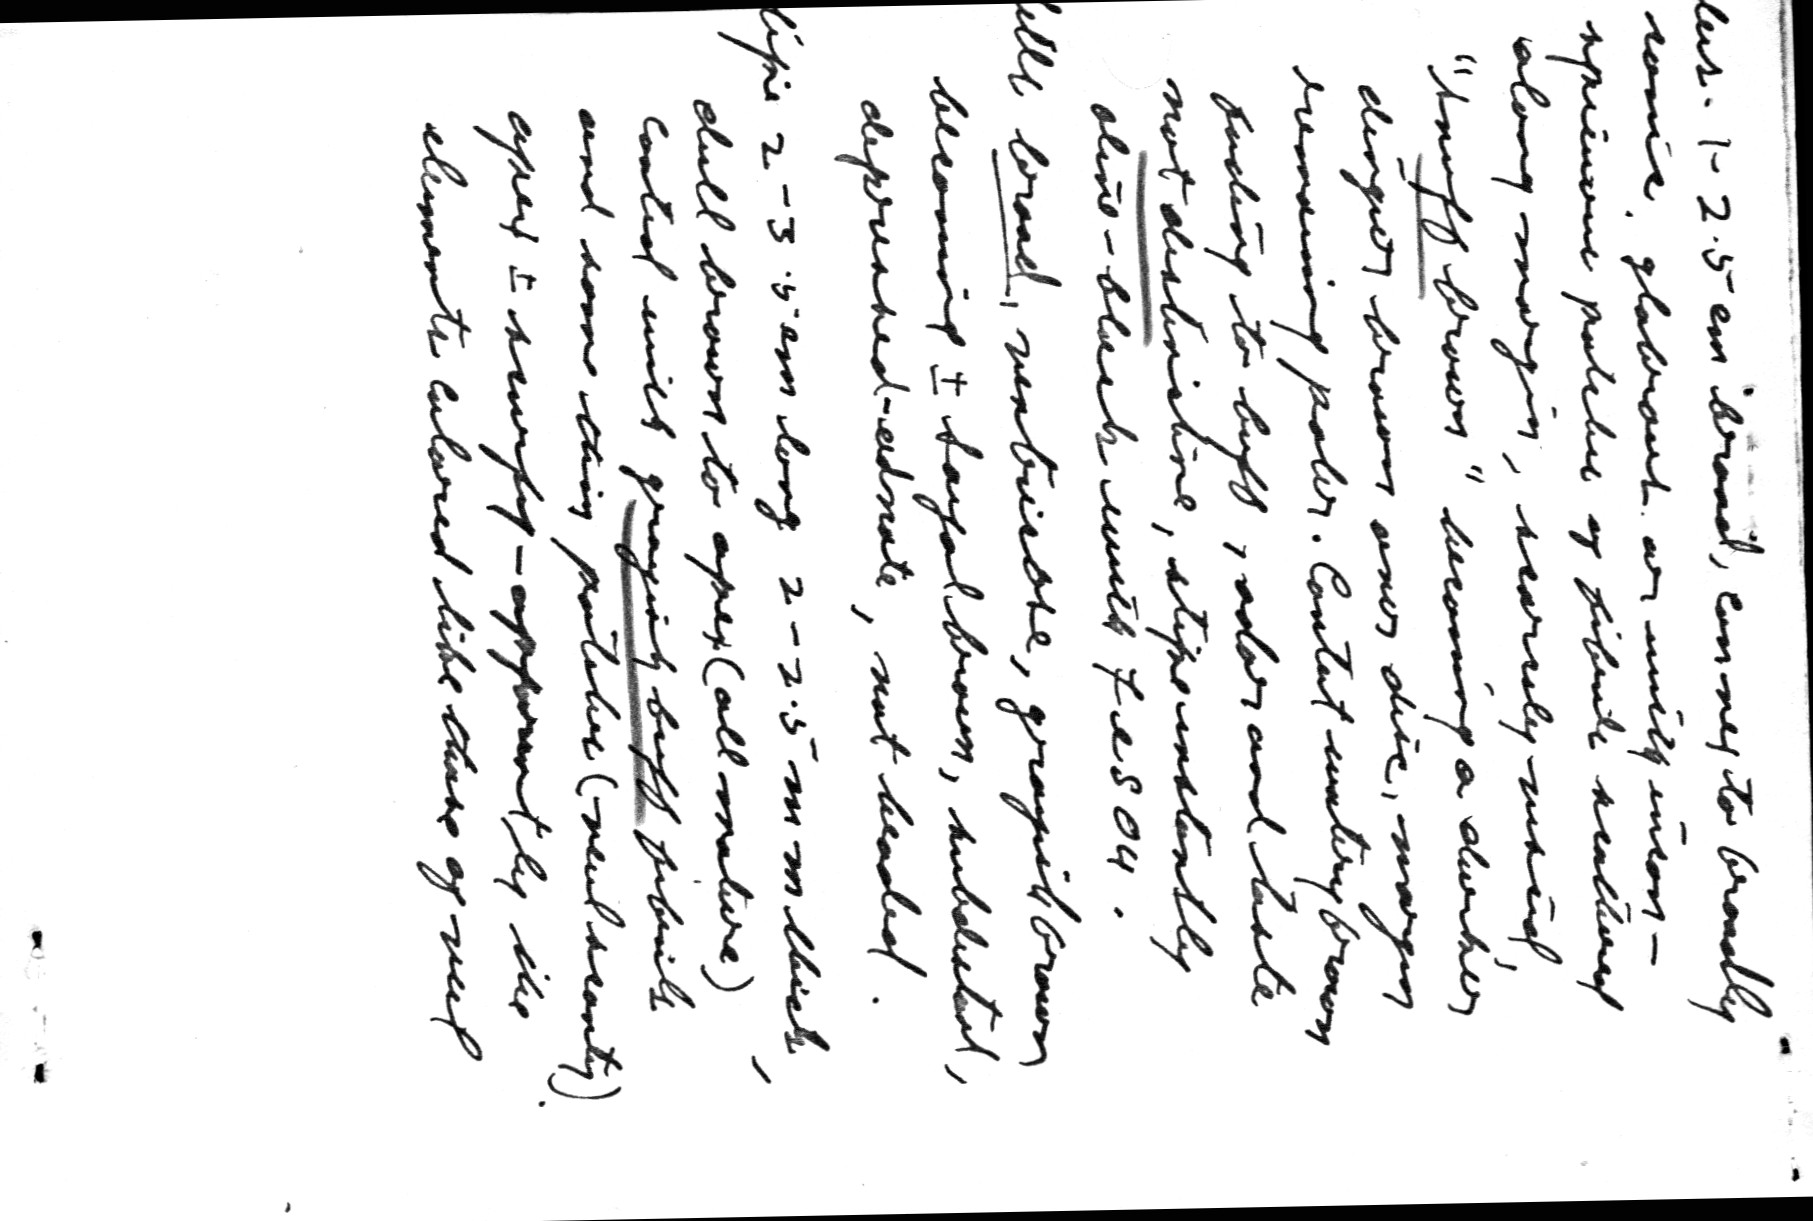 leus. 1-2.5 cm broad, convex to broadly
conic, glabrous or with incon-
spicuous patches of fibrils scattered
along margin, scarcely viscid,
"snuff brown" becoming a darker
dingier brown over disc, margin
remaining paler. Context watery brown
fading to buff, odor and taste
not distinctive, stipe instantly
olive-black with FeSO4.
ellae broad, ventricose, grayish brown
becoming ± sayal brown, subdistant,
depressed-adnate, not beaded.
tipe 2-3.5 cm long 2-2.5 mm thick,
dull brown to apex (all mature)
coated with grayish buff fibrils
and some thin patches (veil scanty).
apex ± scurfy- apparently the
elements colored like those of veil